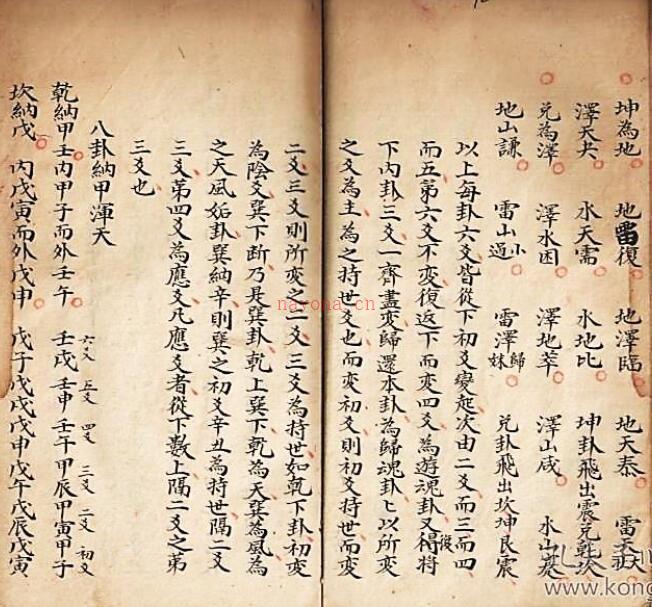 坤為地 地雷復 地澤臨 地天泰 雷天
澤天夬 水天需 水地比 坤卦飛出震兌乾坎
兌為澤 澤水困 澤地萃 澤山咸 水山蹇
地山謙 雷山小過 雷澤歸妹 兌卦飛出坎坤艮震
以上每卦六爻皆從下初爻變起次由二爻而三而四
而五第六爻不变復返下而变四爻為遊魂卦又復得將
下內卦三爻一齊盡变歸還本卦為歸魂卦匕以所变
之爻為主為之持世爻也而变初爻則初爻持世而变
二爻三爻則所变之二爻三爻為持世如乾下卦初变
為陰爻巽下断乃是巽卦乾上巽下乾為天巽為風為
之天風姤卦巽納辛則巽之初爻辛丑為持世隔二爻
三爻第四爻為應爻凡應爻者從下數上隔二爻之第
三爻也
八卦納甲渾天
六爻 五爻 四爻 三爻 二爻 初爻
乾納甲壬內甲子而外壬午 壬戌壬申壬午甲辰甲寅甲子
坎納戊 丙戊寅而外戊申 戊子戊戌戊申戊午戊辰戊寅
nayona.cn